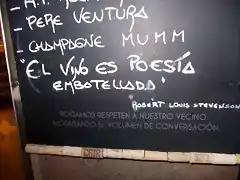 - PERE VENTURA
- CHAMPAGNE MUMM
"EL VINO ES POESÍA
EMBOTELLADA"
ROBERT LOUIS STEVENSON
ROGAMOS RESPETEN A NUESTRO VECINO
MODERANDO EL VOLUMEN DE CONVERSACIÓN